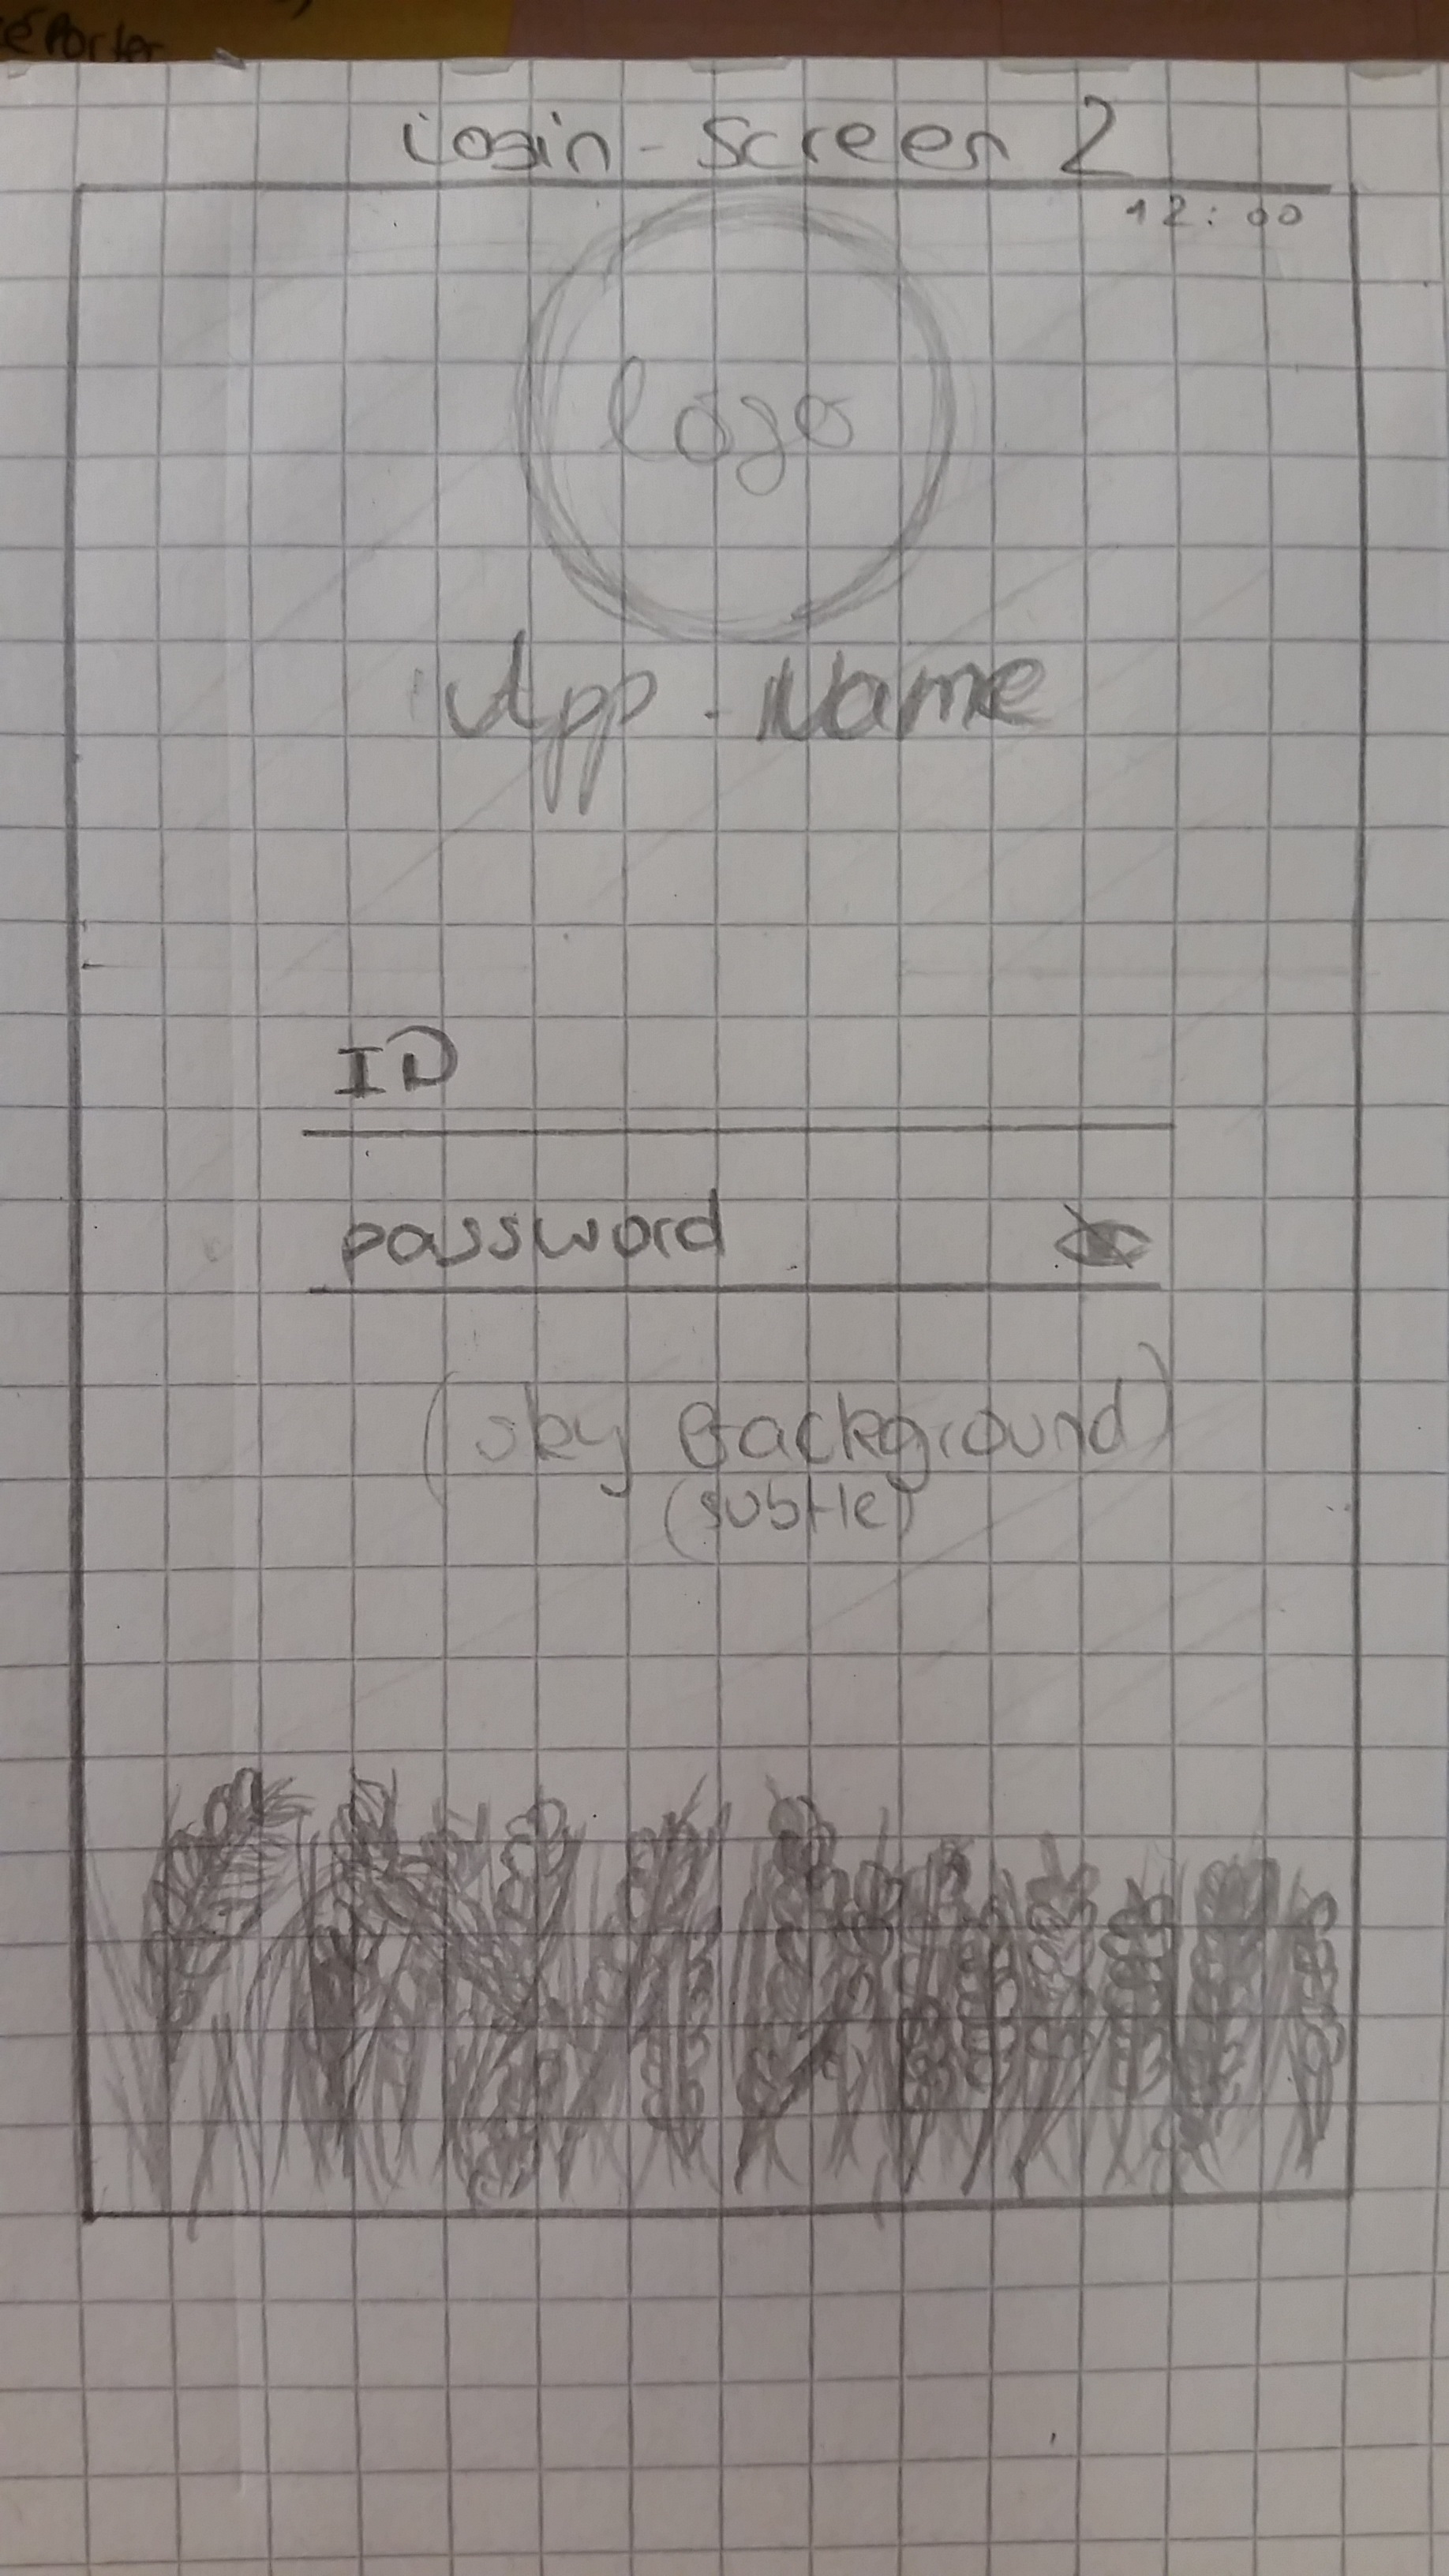 eporter
Login - Screen 2
12:00
logo
App - Name
ID
password
(sky Background)
(subtle)